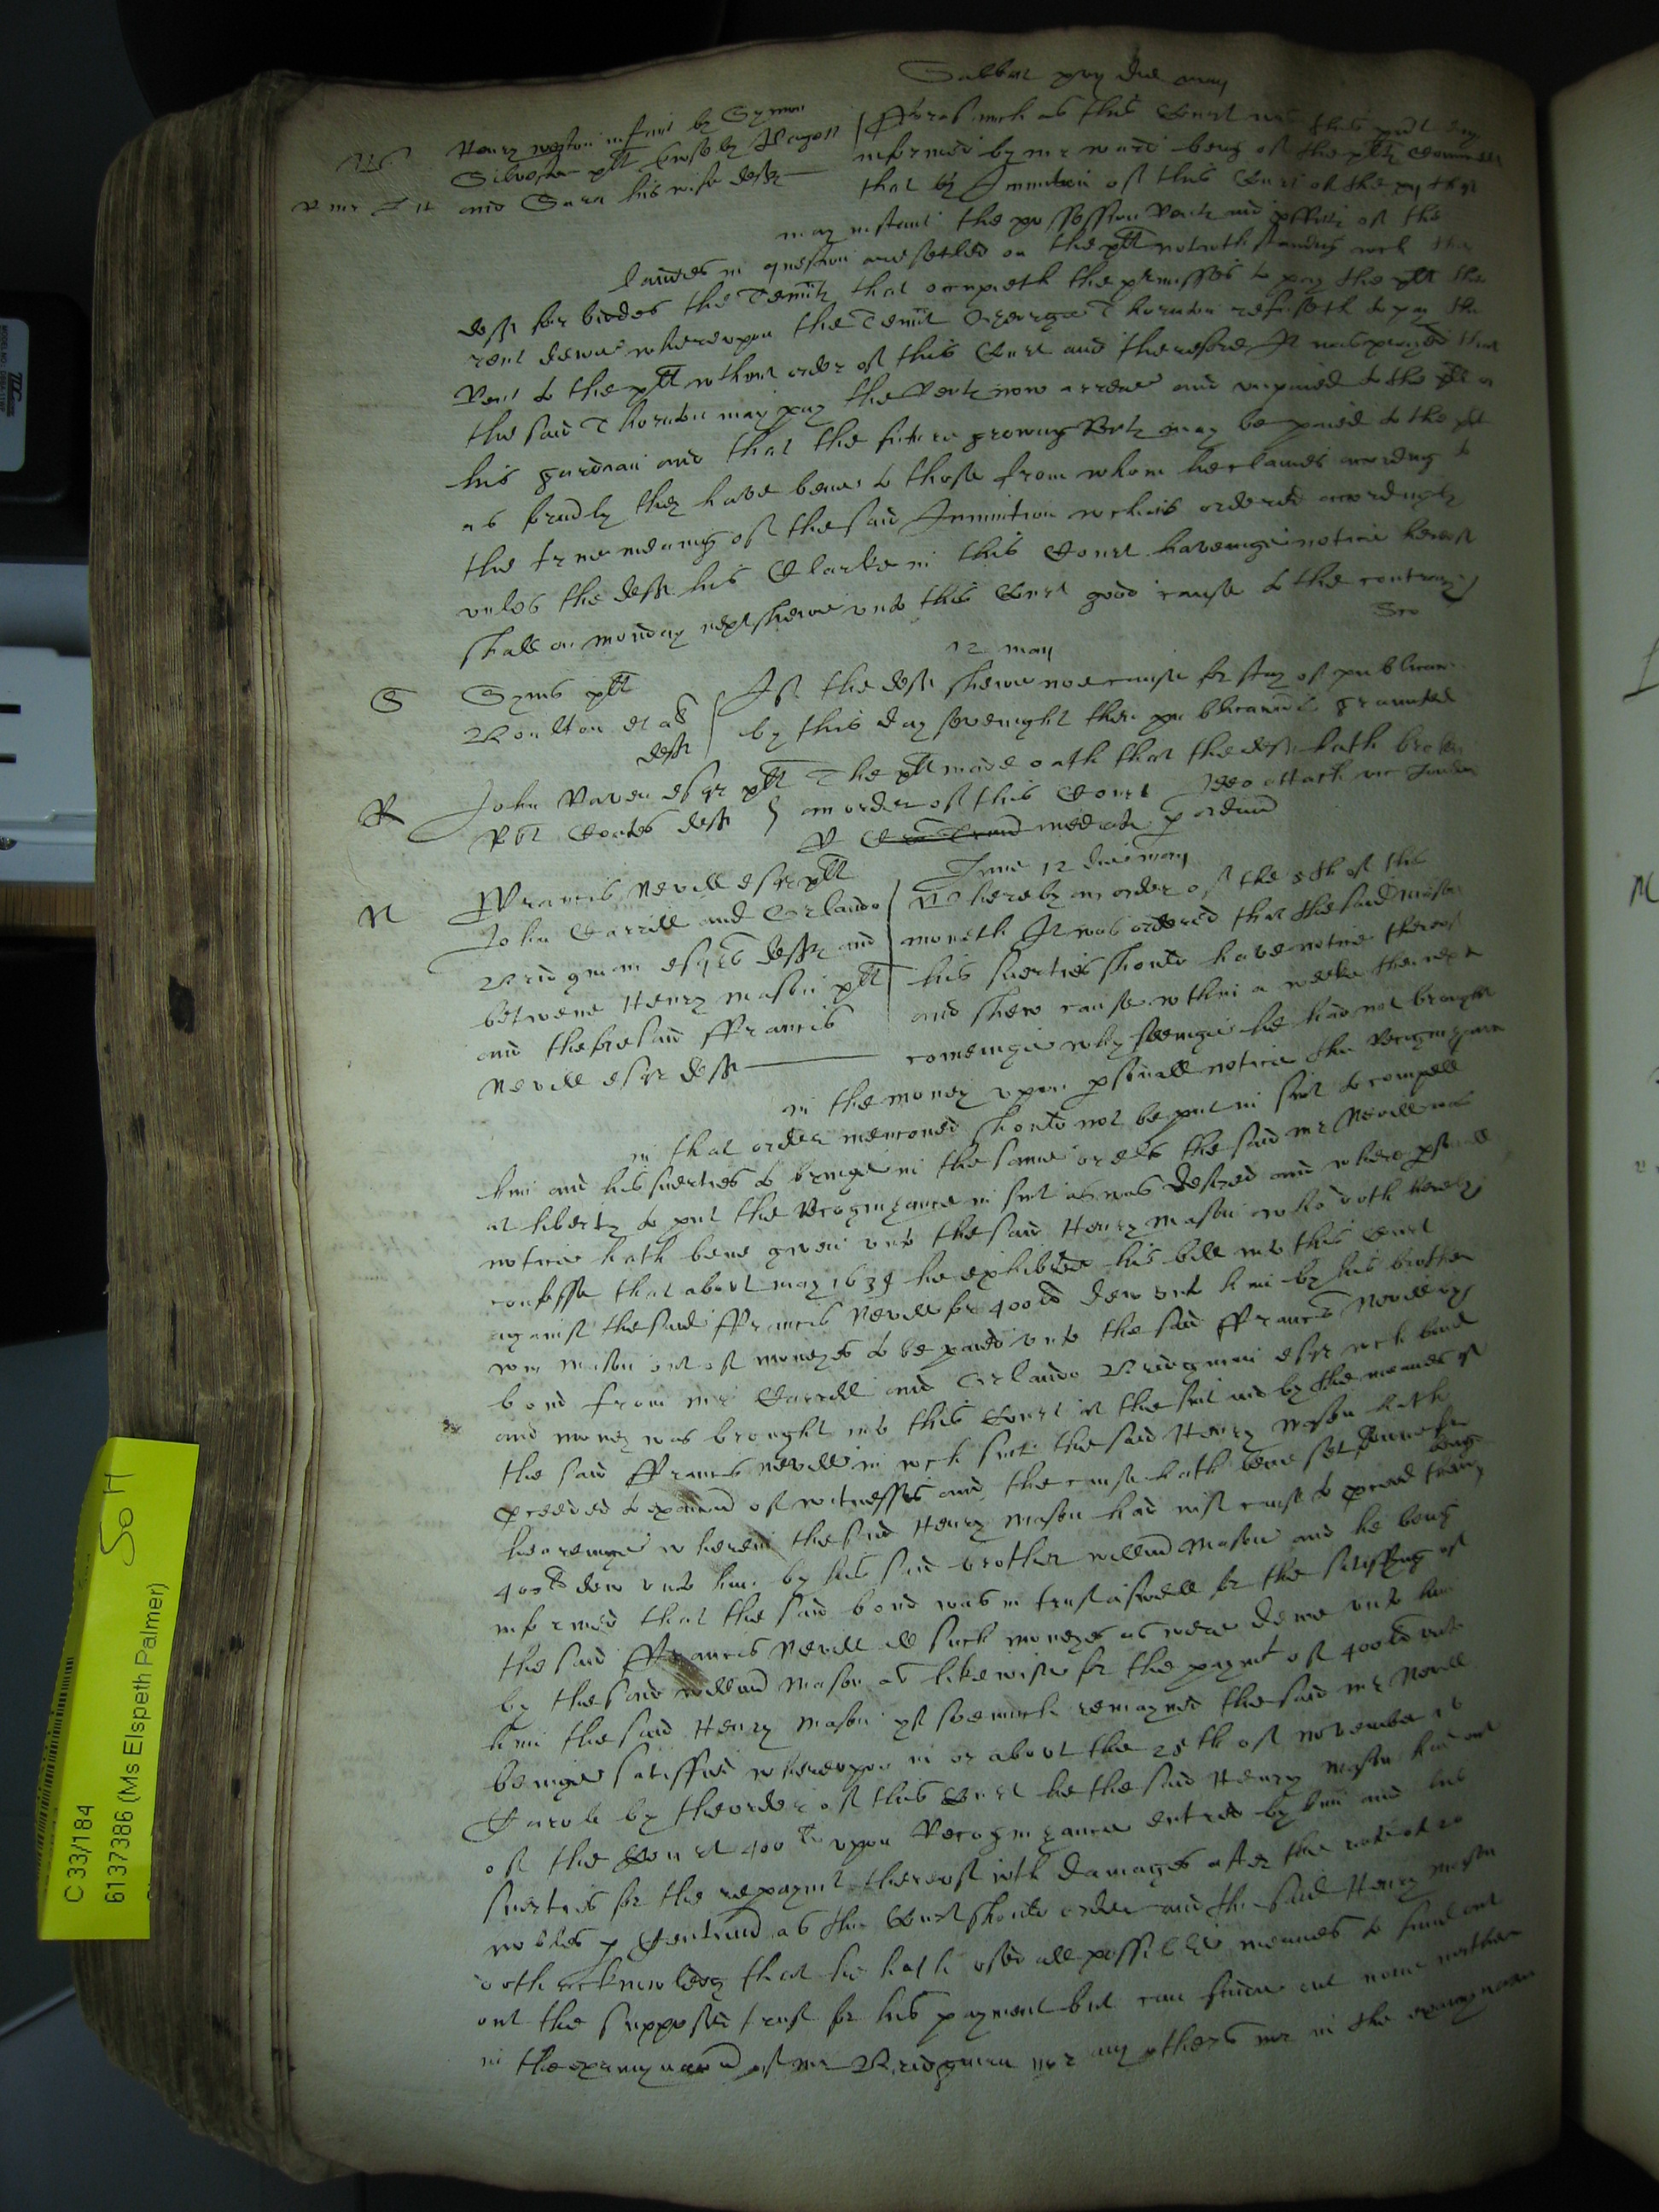 Sabbti xvj die may
Henry Weston infant by Symon
Silvester plt
and Sara his wife defts
Forasmuch as this Court was this pnt day
informed by mr ward being of the plts Councell
that by Iniunction of this Court of the
may instant the possession Rents and proffitts of the
landes in question are setled on the plt notwithstanding wch the
deft forbiddes the Tennts that occupieth the premisses to pay the plt the
rent dewe whereupon the Tennt George Thornton refuseth to pay the
Rent to the plt without order of this Court and therefore It was prayed that
the said Thornton may pay the Rents now arreare and unpaied to the plt or
his gardian and that the future growing Rents may be paied to the plt
as formerly they have beene to those from whom he claimes according to
the true meaning of the said Iniunction which is ordered accordingly
unles the defts his Clarke in this Court haveinge notice hereof
shall on monday next shewe unto this Court good cause to the contrary
12 may
S
Syms plt
Boulton et al
defts
If the defts shewe noe cause for stay of publicacon
by this day sevenight then publicacon is graunted
R
John Raven esqr plt
Rbt Coates deft
The plt made oath that the deft hath broken
an order of this Court Ideo attach vic London
N
Jovis 12 die may
Francis Nevill esqr plt
John Carrill and Orlando
Bridgman esqrs defts and
betweene Henry Mason plt
and the foresaid Francis
Nevill esqr deft
Whereby an order of the 5th of this
moneth It was ordered that the said Mason
his suerties should have notice thereof
and shew cause within a weeke then next
comeinge why seeinge he had not brought
in the money upon psonall notice the Recognizance
in that order mencioned should not be put in suit to compell
him and his suerties to bringe in the same or els the said mr Nevill was
at liberty to put the Recognizance in suit as was desired and where psonall
notice hath bene given unto the said Henry Mason who doth hereby
confesse that about may 1639 he exhibited his bill into this Court
against the said Francis Nevill for 400li dew unto him by his brother
wm Mason out of moneyes to be paied unto the said Francis Nevill upon
bond from mr Carrill and Orlando Bridgman esqr wch bond
and money was brought into this Court at the suit and by the meanes of
the said Francis Nevill in wch suit the said Henry Mason hath
proceeded to examinacon of witnesses and the cause hath bene set downe for
heareinge wherein the said Henry Mason had iust cause to proceed there being
400li dew unto him by his said brother willm Mason and he being
informed that the said bond was in trust aswell for the satisfying of
the said Francis Nevill all such moneyes as were dewe unto him
by the said willm Mason as likewise for the paymt of 400li unto
him the said Henry Mason yf soe much remayned the said mr Nevill
beinge satisfied whereupon in or about the 28th of November 16
Caroli by the order of this Court he the said Henry Mason had out
of the Court 400li upon Recognizance entred by him and his
suerties for the repaymt thereof with damages after the rate of 20
nobles p Centum as the Court should order and the said Henry Mason
doth acknowledg that he hath used all possible meanes to find out
out the supposed trust for his payment but can finde out none neither
in the examinacon of mr Bridgman nor any others nor in the examinacon
C 33/184
6137386 (Ms Elspeth Palmer)
SoH